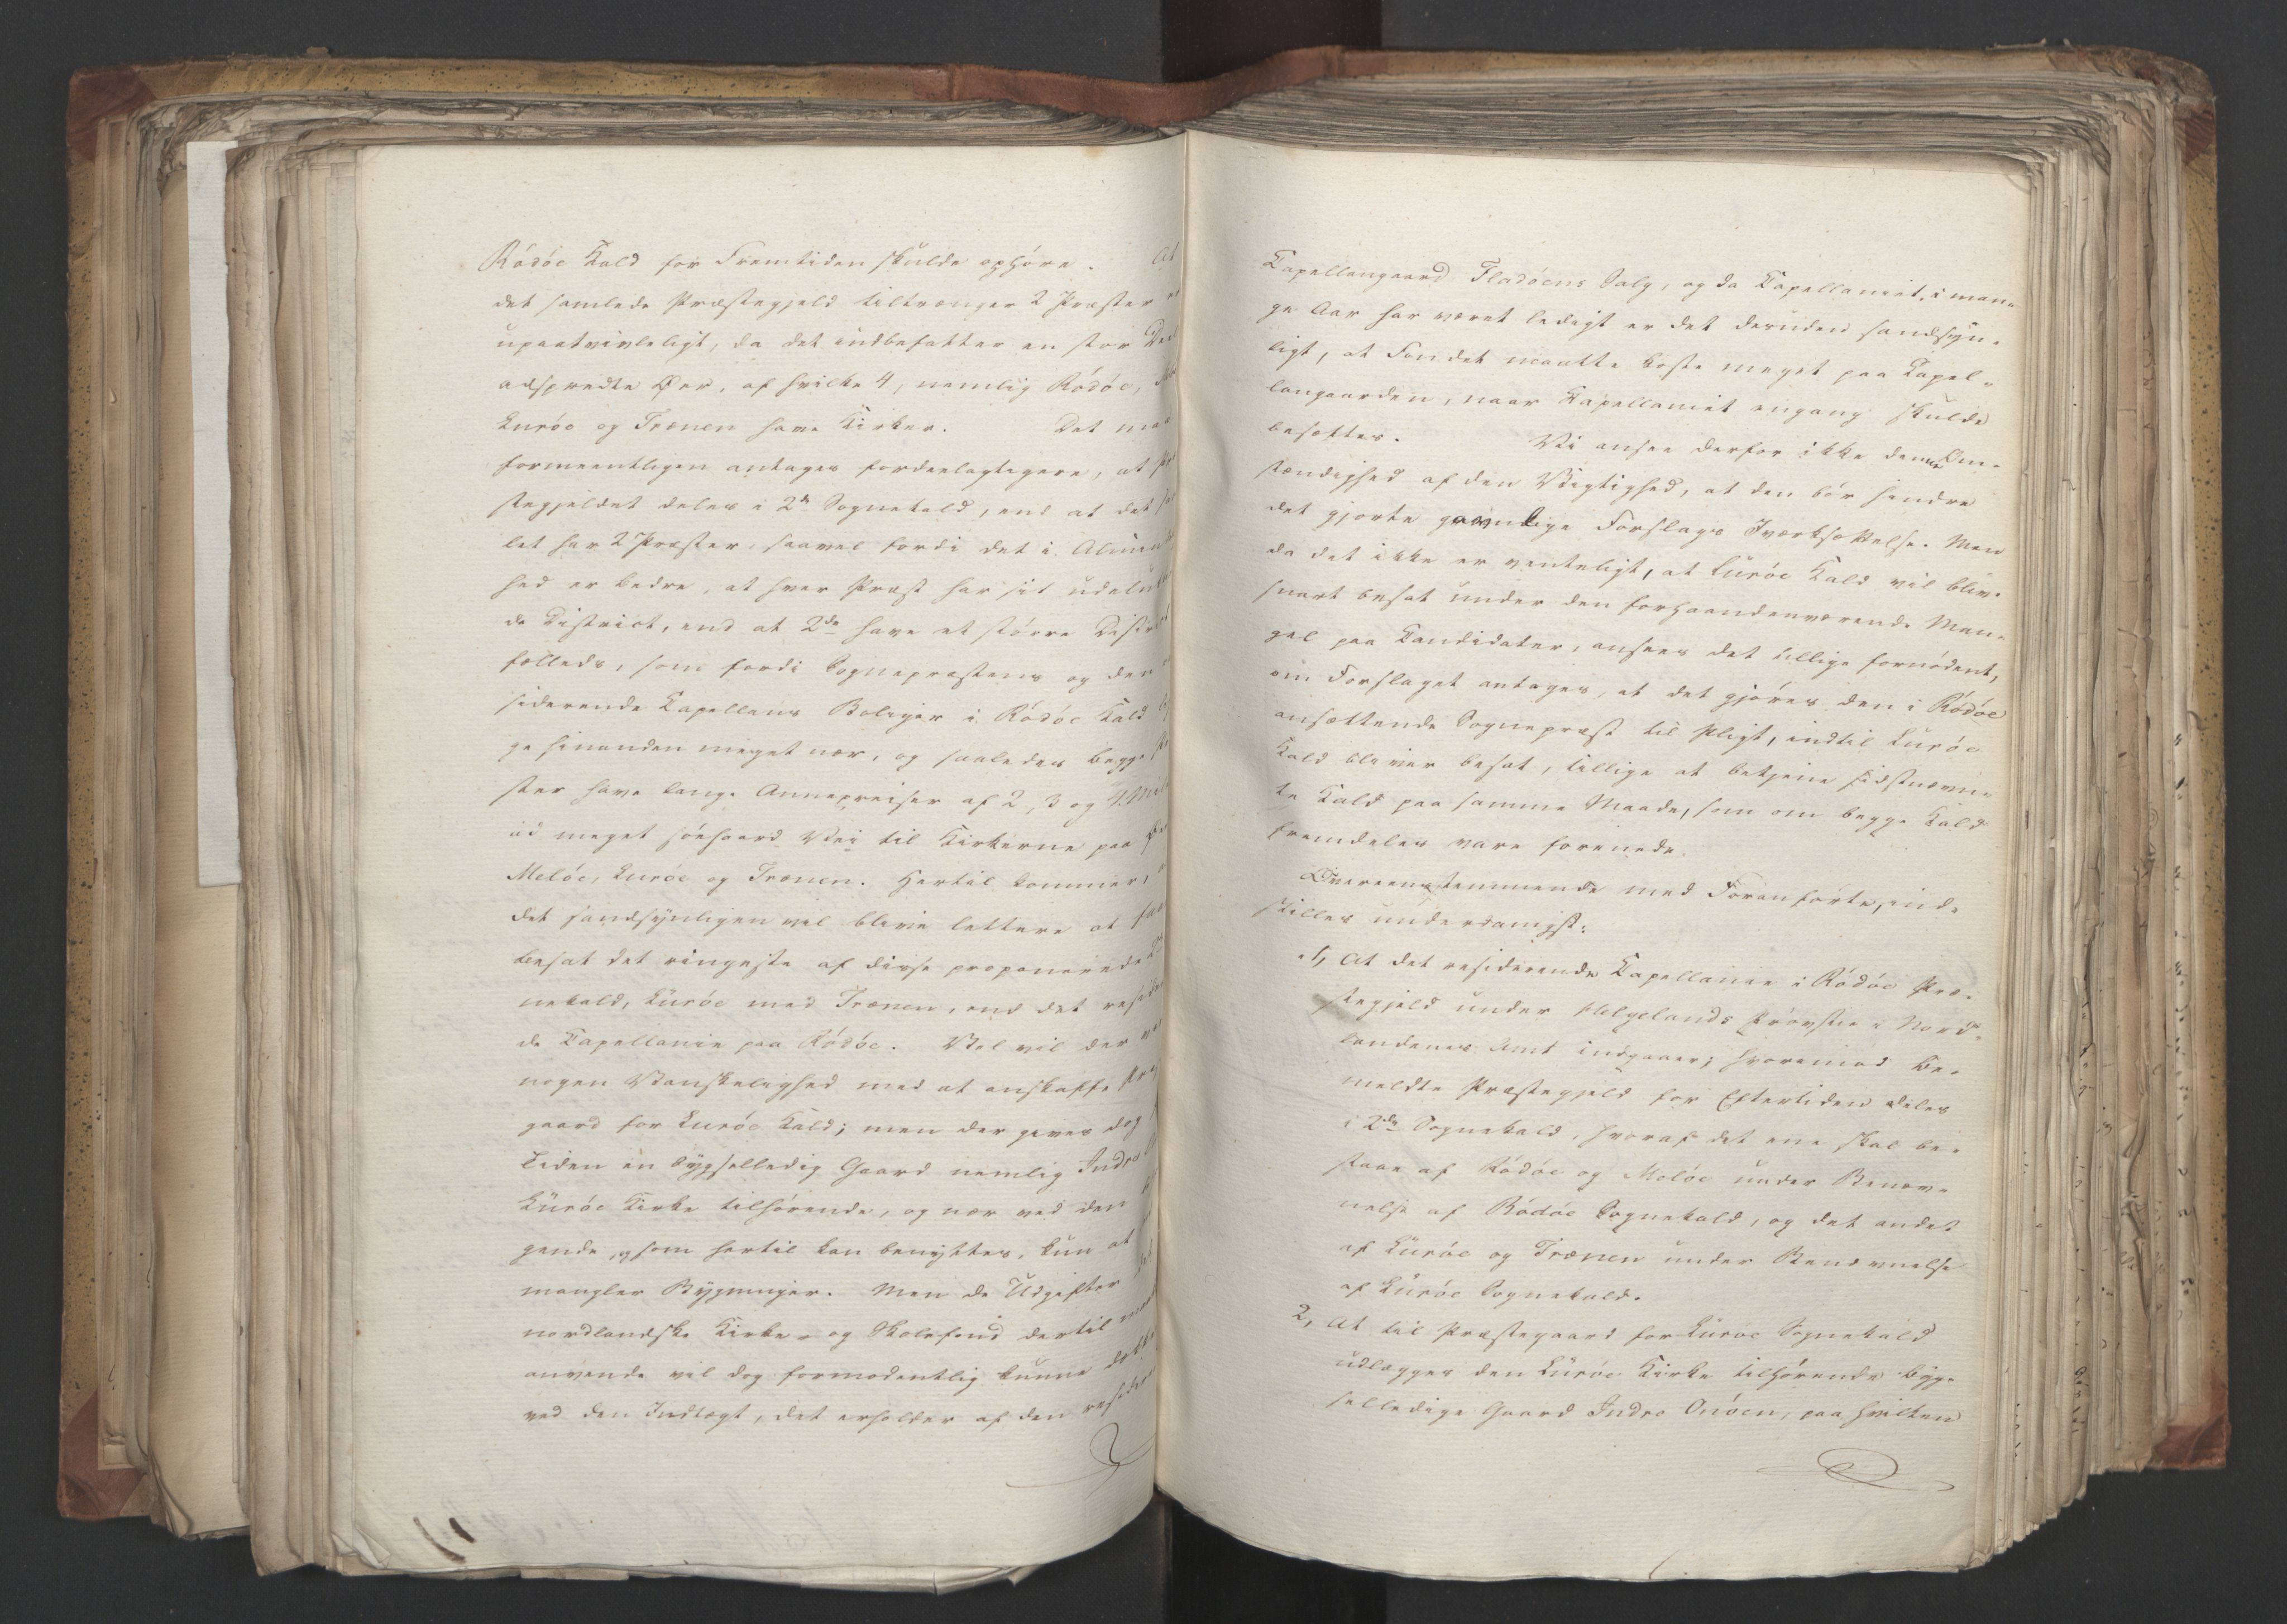 Rödöe Kald for Fremtiden skulde ophöre. At
det samlede Præstegjeld tiltrænger 2 Præster
upaatvivleligt, da det indbefatter en stor Deel
adspredte Öer, af hvilke 4, nemlig Rödöe,
Luröe og Trænen have Kirker. Det maa
formeentligen antages fordeelagtigere, at
stegjeldet deles i 2de Sognekald, end at det
let har 2 Præster, saavel fordi det i Almin
hed er bedre, at hver Præst har sit udeluk
de District, end at 2de have et större Distri
fælleds, som fordi Sognepræstens og den
siderende Kapellans Boliger i Rödöe Kald
ge hinanden meget nær, og saaledes begge
ster have lange Annexreiser af 2, 3 og Mile
ad meget söehaard Vei til Kirkerne paa
Melöe, Luröe og Trænen. Hertil kommer,
det sandsynligen vil blive lettere at faae
besat det ringeste af disse proponerede
nekald, Luröe med Trænen, end det reside
de Kapellanie paa Rödöe. Vel vil der
nogen Vanskelighed med at anskaffe
gaard for Luröe Kald; men der gives dog
Tiden en bygselledig Gaard nemlig Indre
Luröe Kirke tilhörende, og nær ved den
gende, som hertil kan benyttes, kun at
mangler Bygninger. Men de Udgifter
nordlandske Kirke- og Skolefond dertil
anvende vil dog formodentlig kunne
ved den Indtægt, det erholder af den
Kapellangaard Fladöens Salg, og da Kapellaniet i man-
ge Aar har været ledigt er det desuden sandsyn-
ligt, at Fondet maatte koste meget paa Kapel-
langaarden, naar Kapellaniet engang skulde
besættes. Vi ansee derfor ikke denne Om-
stændighed af den Vigtighed, at den bör hindre
det gjorte Forslags Iværksættelse. Men
da det ikke er venteligt, at Luröe Kald vil blive
snart besat under den forhaandenværende Man-
gel paa Kandidater, ansees det tillige fornödent,
om Forslaget antages, at det gjöres den i Rödöe
ansættende Sognepræst til Pligt, indtil Luröe
Kald bliver besat, tillige at betjene sidstnævn-
te Kald paa samme Maade, som om begge Kald
fremdeles vare forenede.
Overeensstemmende med Foranförte, ind-
stilles underdanigst:
1, At det residerende Kapellanie i Rödöe Præ-
stegjeld under Helgelands Provstie i Nord-
landenes Amt indgaaer; hvorimod be-
meldte Præstegjeld for Eftertiden deles
i 2de Sognekald, hvoraf det ene skal be-
staae af Rödöe og Melöe under Benæv-
nelse af Rödöe Sognekald, og det andet
af Luröe og Trænen under Benævnelse
af Luröe Sognekald.
2, At til Præstegaard for Luröe Sognekald
udlægges den Luröe Kirke tilhörende byg-
selledige Gaard Indre Onöen, paa hvilken